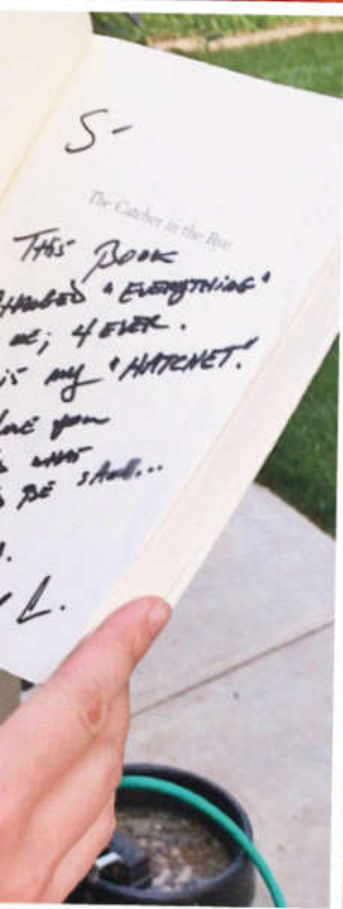 S-
The Catcher in the Rye
THIS BOOK
CHANGED "EVERYTHING"
ME; 4 EVER.
is my "HATCHET."
you
WHAT
BE
L.